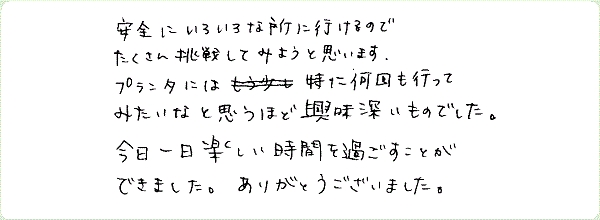 安全にいろいろな所に行けるので
たくさん挑戦してみようと思います。
プランタには 特に何回も行って
みたいなと思うほど興味深いものでした。
今日一日楽しい時間を過ごすことが
できました。ありがとうございました。